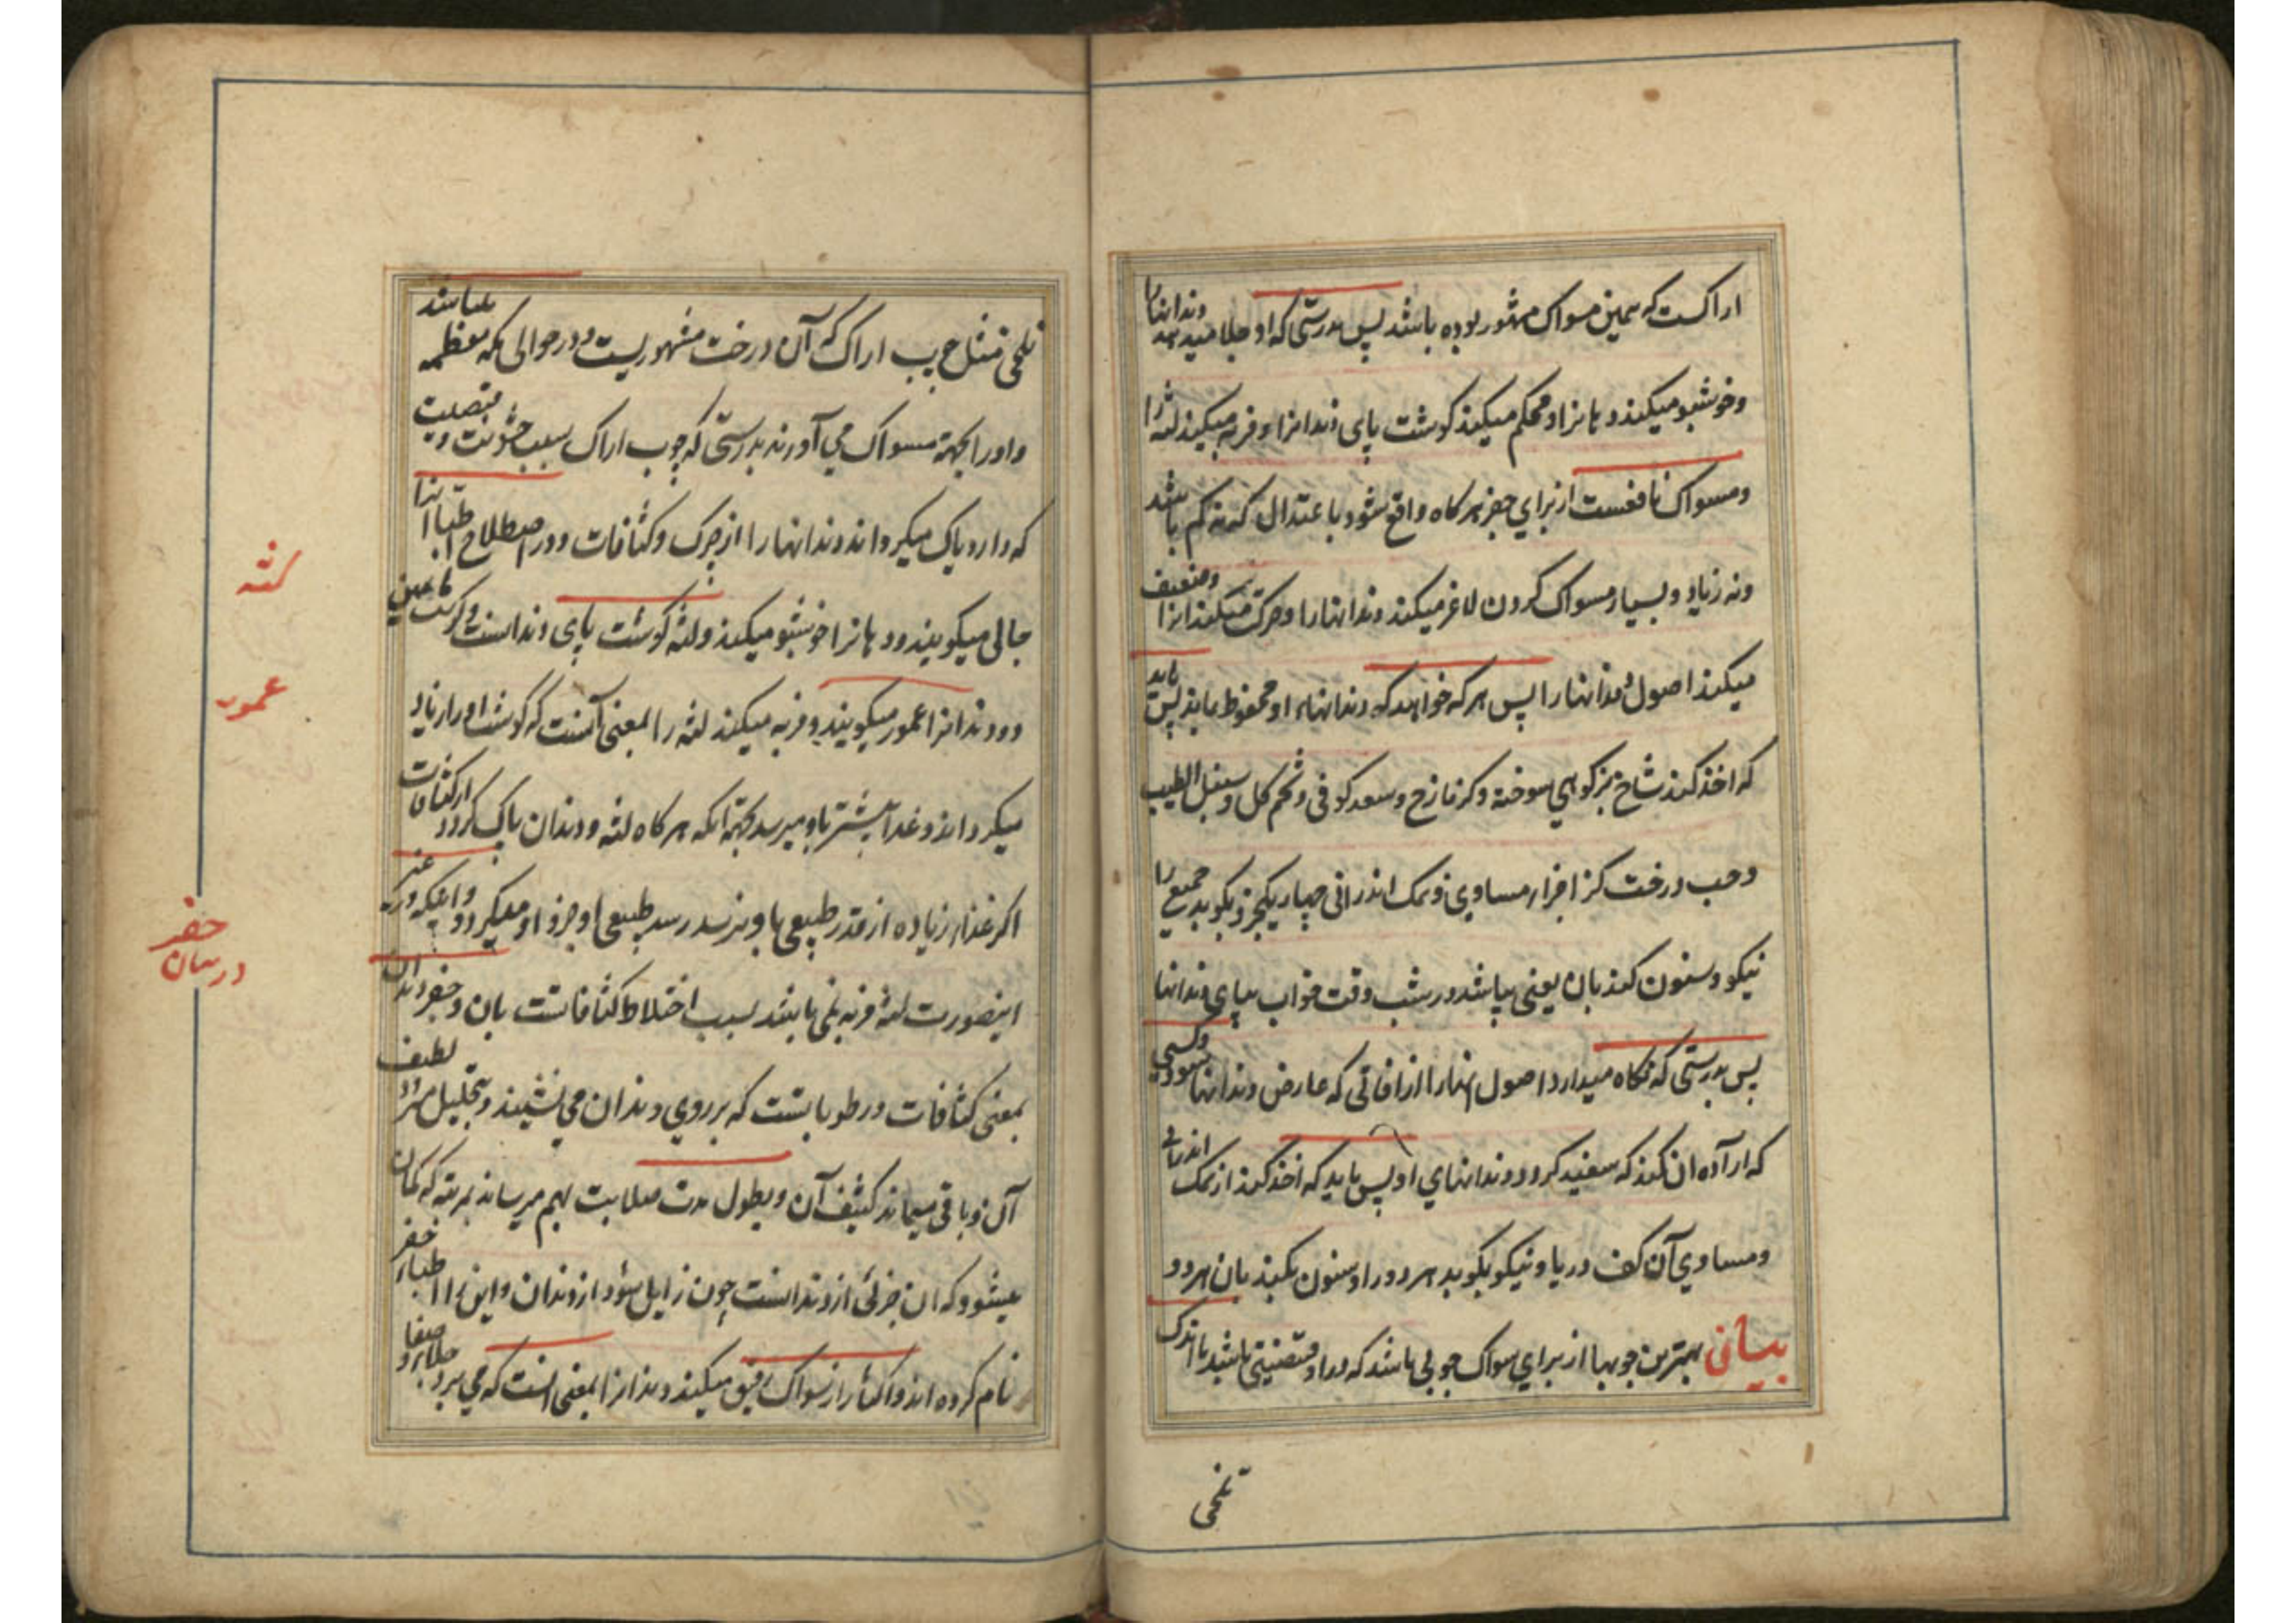 اراکست که همین مسواک مشهور بوده باشد پس بدرستی که او جلا میدهد دندانها را
وخوشبو میکند دهانرا و محکم میکند کوشت پای دندانرا و فربه میکند لثه را
ومسواک نافعست از برای حفر هرکاه واقع شود با عتدال که نه کم باشد
ونه زیاد و بسیار مسواک کردن لاغر میکند دندانهارا و حرکت وضعیف
میکند اصول دندانهارا پس هر که خواهد که دندانهاء او محفوظ ماند پس باید
که اخذ کند شاخ بزکوهی سوخته وکزمازج وسعد کوفی وتخم کل وسنبل الطیب
وحب درخت کز اجزاء مساوی ونمک اندرانی چهار یکجزو بکوبد جمیع را
نیکو وسنون کند بان یعنی بپاشد در شب وقت خواب بپای دندانها
پس بدرستی که نکاه میدارد اصول انهارا از افاتی که عارض دندانها میشود وکسی
که اراده ان کند که سفید کردد دندانهای او پس باید که اخذ کند از نمک اندرانی
ومساوی آن کف دریا ونیکو بکوبد هر دو را وسنون بکند بان هردو
بیان بهترین چوبها از برای مسواک چوبی باشد که در او قبضیتی باشد با اندک
تلخی
تلخی مثل چوب اراک که آن درخت مشهوریست ودر حوالی مکه معظمه میباشد
واورا بجهة مسواک می آورند بدرستی که چوب اراک بسبب خشونت وقبضیت
که دارد پاک میکرداند دندانهارا از چرک وکثافات ودر اصطلاح اطبا انرا
جالی میکویند ودهانرا خوشبو میکند ولثه کوشت پای دندانست
ودندانرا عمور میکویند وفربه میکند لثه را بمعنی آنست که کوشت اورا زیاد
میکرداند وغذا بیشتر باو میرسد بجهة آنکه هرکاه لثه ودندان پاک کردد از کثافات
اکر غذاء زیاده از قدر طبیعی باو نرسد رسد طبیعی او جزو او میکردد
اینصورت لثه فربه نمی باشد بسبب اختلاط کثافاتست بان وحفر دندان
بمعنی کثافات ورطوباتست که برروی دندان می نشیند وبتحلیل میرود لطیف
آن وباقی میماند کثیف آن وبطول مدت صلابت بهم میرساند بمرتبه که کمان
میشود که ان جزئی از دندانست چون زایل شود از دندان واین را اطباء حفر
نام کرده اند واکثار از مسواک رقیق میکند دندانرا بمعنی انست که می برد جلا وصفا
لثه
عمور
حفر
دندان